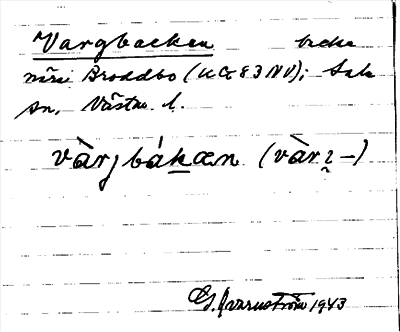 Vargbacken backe
nära Broddbo (KG 83 NV); Sala
sn, Västm. l.
vàrjbákæn (vàrɿ–)
G. Kvarnström 1943